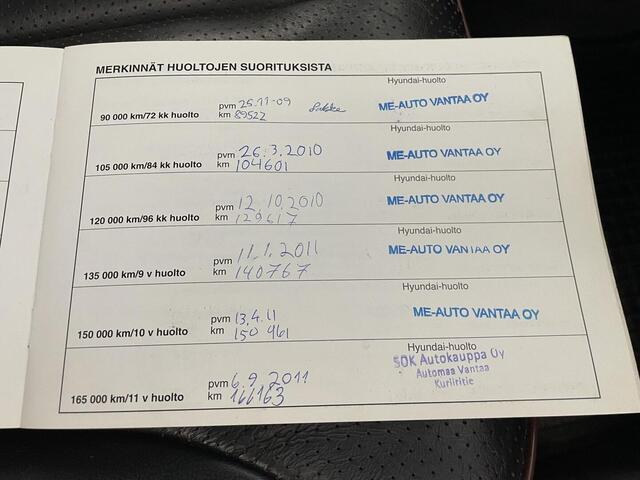 MERKINNÄT HUOLTOJEN SUORITUKSISTA
Hyundai-huolto
90 000 km/72 kk huolto
pvm 25.11-09
km 89522
ME-AUTO VANTAA OY
Hyundai-huolto
105 000 km/84 kk huolto
pvm 26.3.2010
km 104601
ME-AUTO VANTAA OY
Hyundai-huolto
120 000 km/96 kk huolto
pvm 12.10.2010
km 129617
ME-AUTO VANTAA OY
Hyundai-huolto
135 000 km/9 v huolto
pvm 11.1.2011
km 140767
ME-AUTO VANTAA OY
Hyundai-huolto
150 000 km/10 v huolto
pvm 13.4.11
km 150 461
ME-AUTO VANTAA OY
Hyundai-huolto
165 000 km/11 v huolto
pvm 6.9.2011
km 166163
SOK Autokauppa Oy
Automaa Vantaa
Kuriiritie